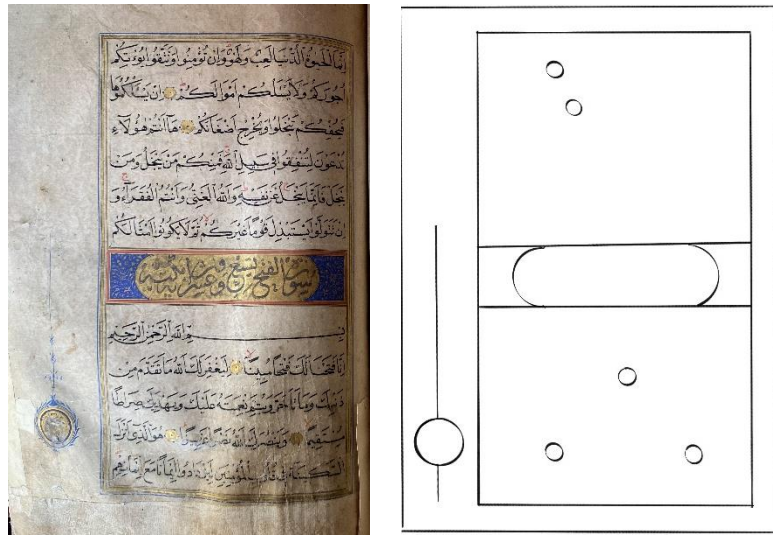 إِنَّمَا الْحَيٰوةُ الدُّنْيَا لَعِبٌ وَلَهْوٌ وَاِنْ تُؤْمِنُوا وَتَتَّقُوا يُؤْتِكُمْ
اُجُورَكُمْ وَلَا يَسْئَلْكُمْ اَمْوَالَكُمْ اِنْ يَسْئَلْكُمُوهَا
فَيُحْفِكُمْ تَبْخَلُوا وَيُخْرِجْ اَضْغَانَكُمْ هَا اَنْتُمْ هٰؤُلَاءِ
تُدْعَوْنَ لِتُنْفِقُوا فِي سَبِيلِ اللهِ فَمِنْكُمْ مَنْ يَبْخَلُ وَمَنْ
يَبْخَلْ فَاِنَّمَا يَبْخَلُ عَنْ نَفْسِهِ وَاللهُ الْغَنِيُّ وَاَنْتُمُ الْفُقَرَاءُ وَ
اِنْ تَتَوَلَّوْا يَسْتَبْدِلْ قَوْمًا غَيْرَكُمْ ثُمَّ لَا يَكُونُوا اَمْثَالَكُمْ
سورت الفتح تسع وعشرون اية
بِسْمِ اللهِ الرَّحْمٰنِ الرَّحِيمِ
اِنَّا فَتَحْنَا لَكَ فَتْحًا مُبِينًا لِيَغْفِرَ لَكَ اللهُ مَا تَقَدَّمَ مِنْ
ذَنْبِكَ وَمَا تَاَخَّرَ وَيُتِمَّ نِعْمَتَهُ عَلَيْكَ وَيَهْدِيَكَ صِرَاطًا
مُسْتَقِيمًا وَيَنْصُرَكَ اللهُ نَصْرًا عَزِيزًا هُوَ الَّذِي اَنْزَلَ
السَّكِينَةَ فِي قُلُوبِ الْمُؤْمِنِينَ لِيَزْدَادُوا اِيمَانًا مَعَ اِيمَانِهِمْ